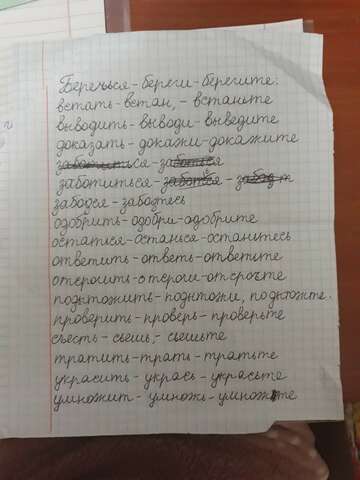 Беречься-береги-берегите.
встать-встан,-встаньте
выводить-выводи-выведите
доказать-докажи-докажите
заботиться-
забодся-заботесь
одобрить-одобри-одобрите
остаться-останься-останьтесь
ответить-ответь-ответите
подытожить-подытожи, подытожте.
проверить-проверь-проверьте
съесть-сьешь,-сьешьте
тратить-трать-тратьте
украсить-укрась-украсьте
умножит-умножь-умножте